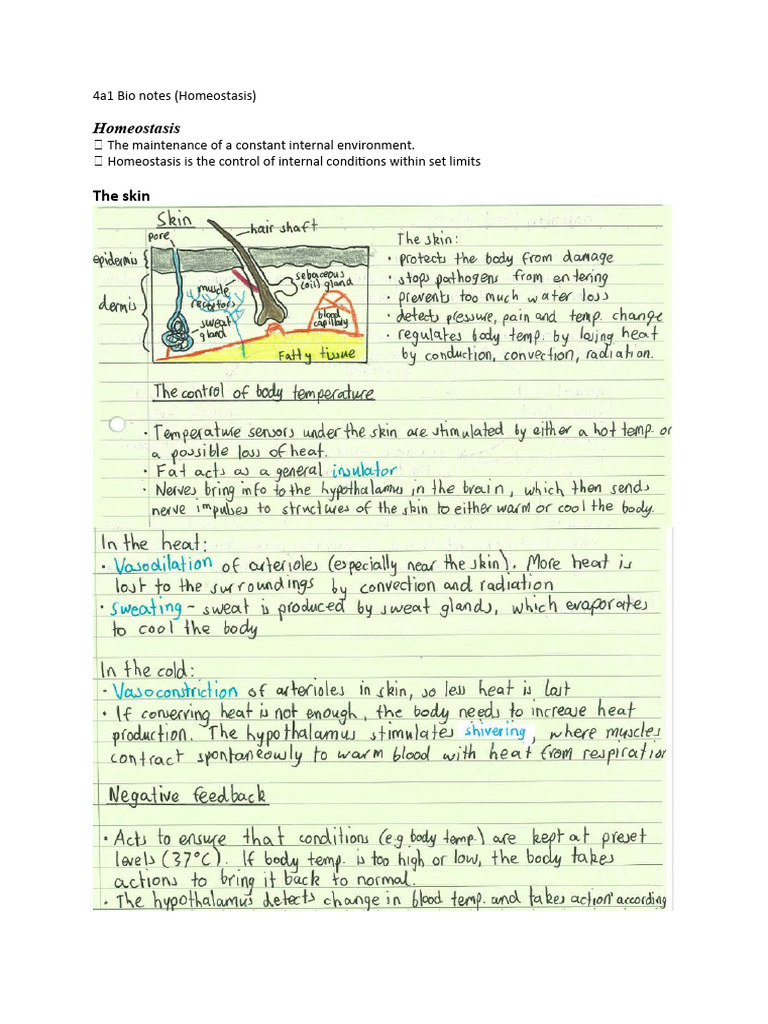 4a1 Bio notes (Homeostasis)
Homeostasis
The maintenance of a constant internal environment.
Homeostasis is the control of internal conditions within set limits
The skin
Skin
pore
hair shaft
epidermis
dermis
muscle
receptors
sweat
gland
sebaceous
(oil) gland
blood
capillary
Fatty tissue
The skin:
• protects the body from damage
• stops pathogens from entering
• prevents too much water loss
• detects pressure, pain and temp. change
• regulates body temp. by losing heat
by conduction, convection, radiation.
The control of body temperature
• Temperature sensors under the skin are stimulated by either a hot temp. or
a possible loss of heat.
• Fat acts as a general insulator
• Nerves bring info to the hypothalamus in the brain, which then sends
nerve impulses to structures of the skin to either warm or cool the body.
In the heat:
• Vasodilation of arterioles (especially near the skin). More heat is
lost to the surroundings by convection and radiation
• Sweating – sweat is produced by sweat glands, which evaporates
to cool the body
In the cold:
• Vasoconstriction of arterioles in skin, so less heat is lost
• If conserving heat is not enough, the body needs to increase heat
production. The hypothalamus stimulates shivering, where muscles
contract spontaneously to warm blood with heat from respiration
Negative feedback
• Acts to ensure that conditions (e.g body temp.) are kept at preset
levels (37°C). If body temp. is too high or low, the body takes
actions to bring it back to normal.
• The hypothalamus detects change in blood temp. and takes action according